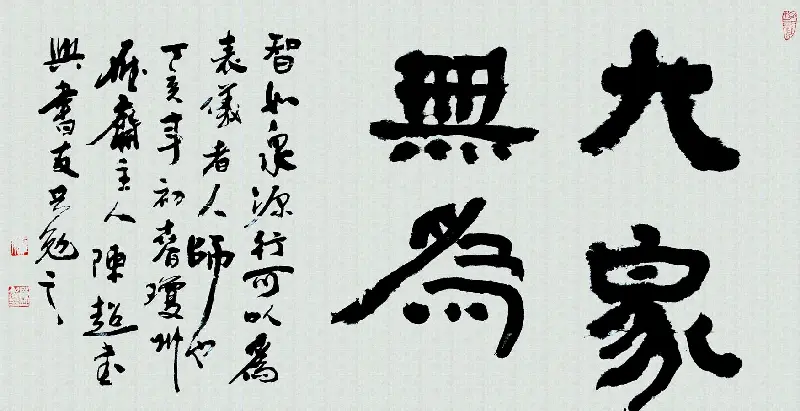 大家
無為
智如泉源行可以為
表儀者人師也
丁亥年初春瓊州
齋主人陳超書
與書友共勉之